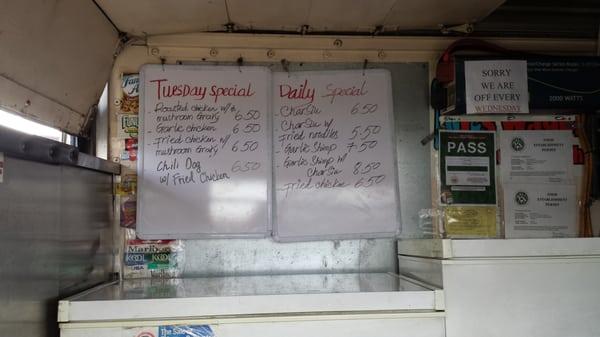 Tuesday special
Roasted chicken w/
mushroom gravy 6.50
- Garlic chicken 6.50
- Fried chicken w/
mushroom gravy 6.50
Chili Dog 6.50
w/ Fried Chicken
Daily Special
- CharSiu 6.50
- CharSiu w/
Fried noodles 5.50
- Garlic Shimp 7.50
- Garlic Shimp w/
CharSiu 8.50
- Fried chicken 6.50
SORRY WE
are OFF EVERY
WEDNESDAY
2000 WATTS
PASS
FOOD
ESTABLISHMENT
PERMIT
FOOD
ESTABLISHMENT
PERMIT
Marlboro
KOOL